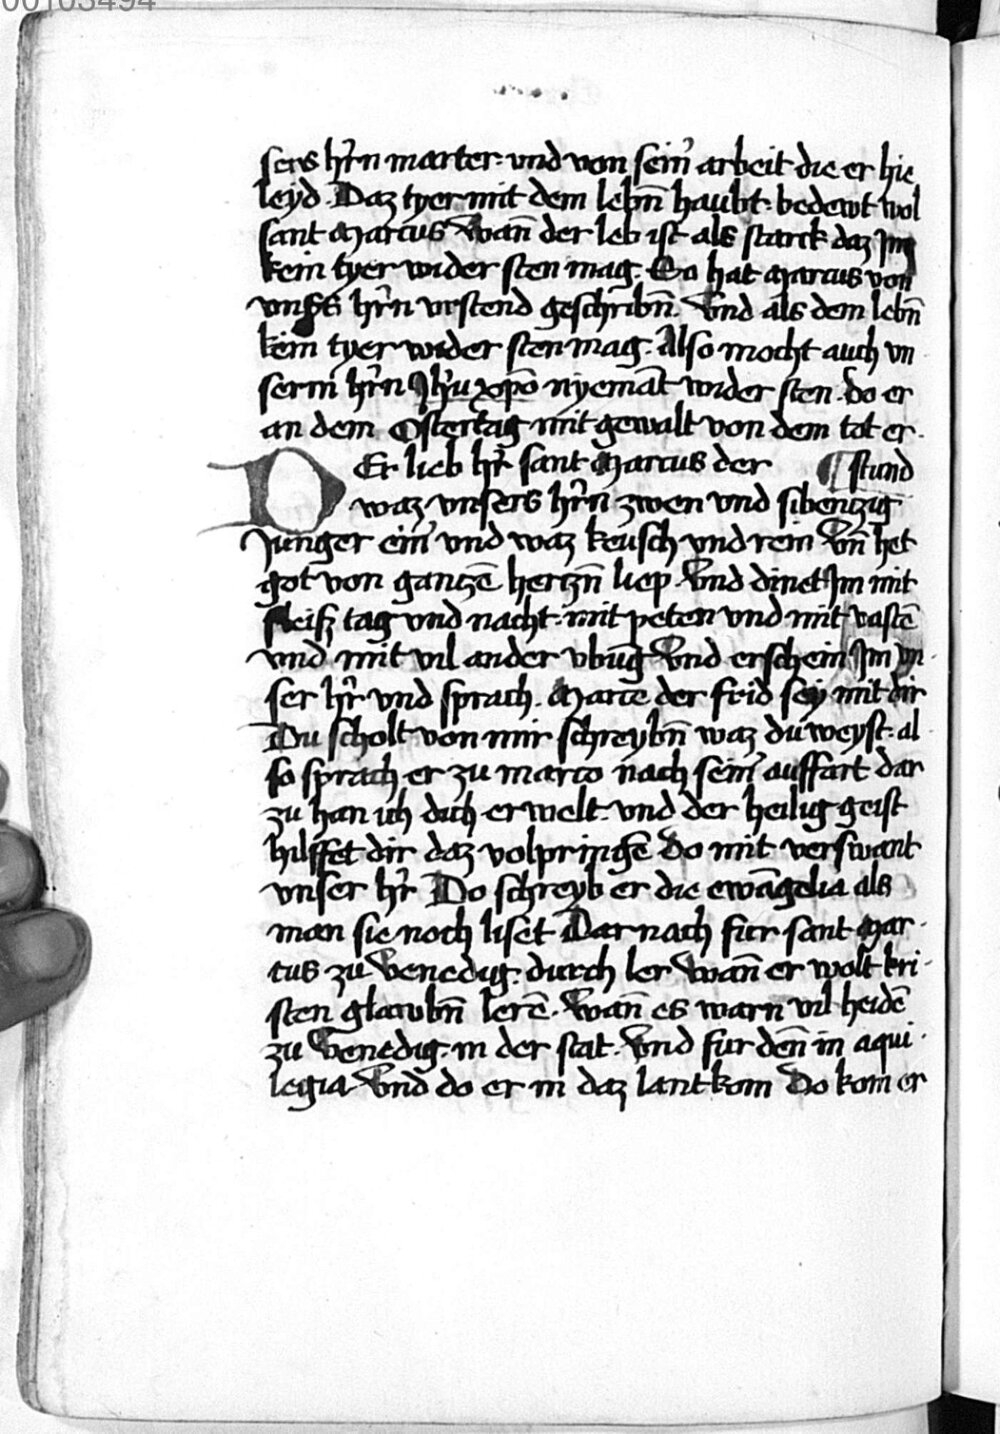 00103494
sers hr̃n marter· vnd von sein̾ arbeit die er hie
leyd· Daz tyer mit dem lebñ haubt· bedewt wol
sant Marcus Wañ der leb ist als starck daz Im
kein tyer wider sten mag· Ez hat Marcus von
vnsers hr̃n vrstend geschribñ· Vnd als dem lebñ
kein tyer wider sten mag· Also mocht auch vn
serm hr̃n Jh̃u xp̃o nyemãt wider sten· do er
an dem Ostertag mit gewalt von dem tot er·
DEr lieb hr̃ sant Marcus der ¶ stund
waz vnsers hr̃n zwen vnd sibenczig
Junger ein̾ vnd waz keusch vnd rein Vñ het
got von ganczẽ herczñ liep· Vnd dinet Im mit
fleisz tag vnd nacht· mit peten vnd mit vastẽ
vnd mit vil ander vbũg Vnd erschein Im vn·
ser hr̃ vnd sprach· Marce der frid sey mit dir
Du scholt von mir schreybñ waz du weyst· al
so sprach er zu marco nach sein̾ auffart dar
zu han ich dich erwelt· vnd der heilig geist
hilffet dir daz volpringẽ Do mit verswant
vnser hr̃ Do schreyb er die ewãgelia als
man sie noch liset Dar nach fur sant Mar·
cus zu Venedig· durch ler Wañ er wolt kri·
sten glaubñ lerẽ· Wañ es warn vil heidẽ
zu Venedig· in der stat· Vnd fur deñ in aqui·
legia Vnd do er in daz lant kom Do kom er